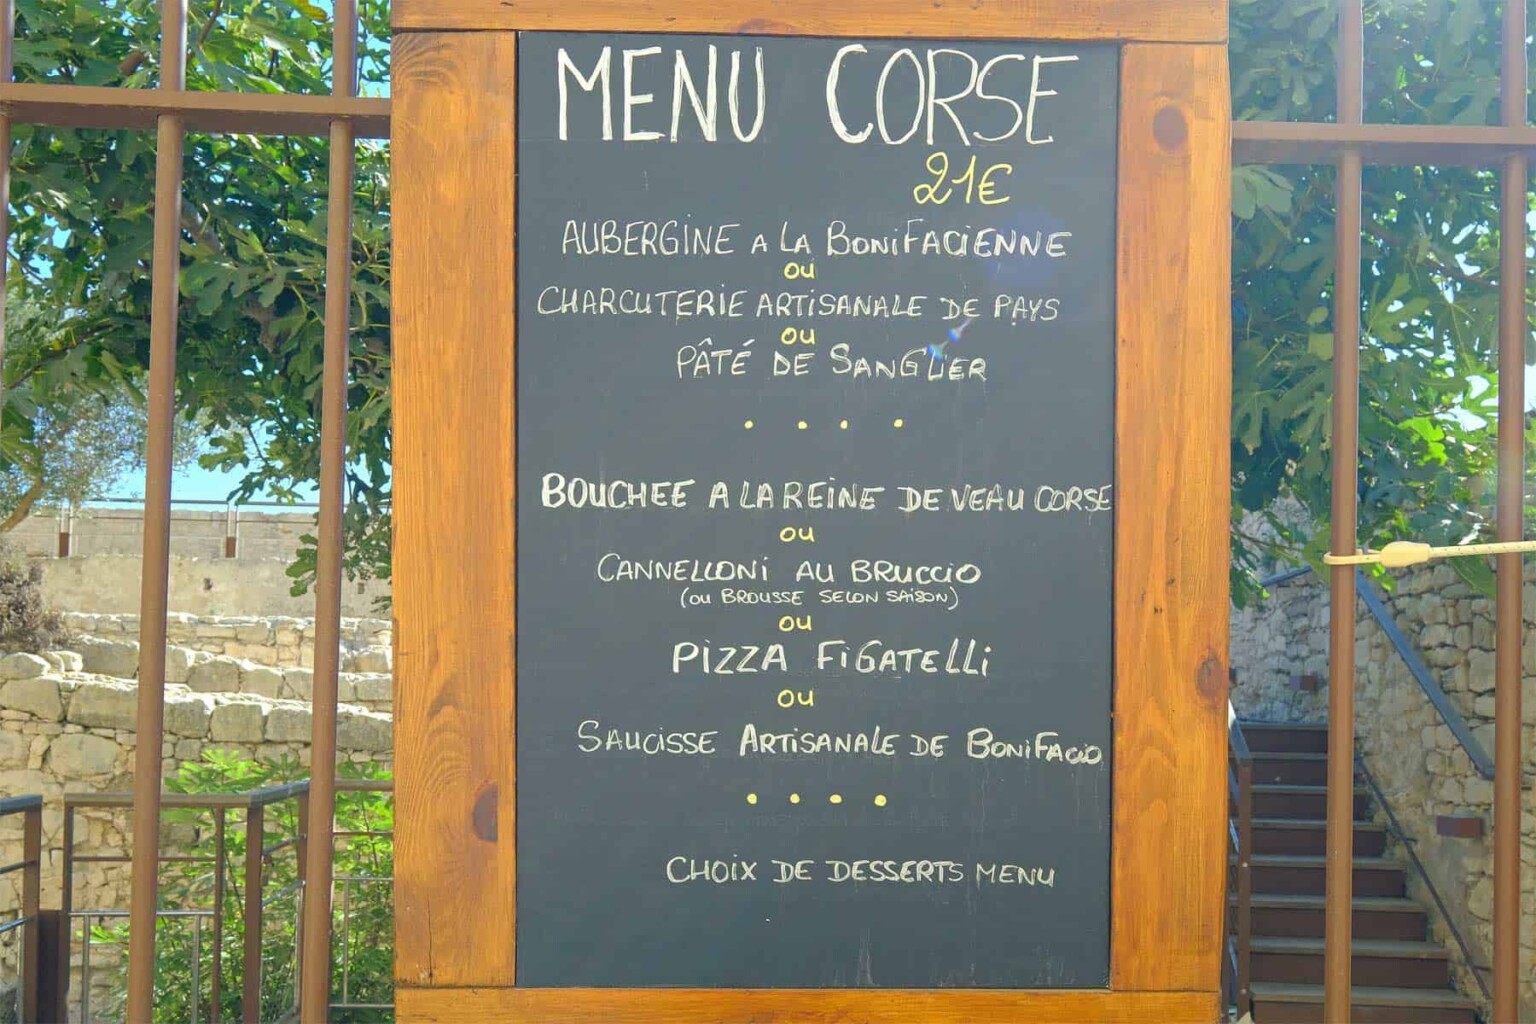 MENU CORSE
21€
AUBERGINE A LA BONIFACIENNE
OU
CHARCUTERIE ARTISANALE DE PAYS
OU
PÂTÉ DE SANGLIER
• • • •
BOUCHEE A LA REINE DE VEAU CORSE
OU
CANNELLONI AU BRUCCIO
(OU BROUSSE SELON SAISON)
OU
PIZZA FIGATELLI
OU
SAUCISSE ARTISANALE DE BONIFACIO
• • • •
CHOIX DE DESSERTS MENU